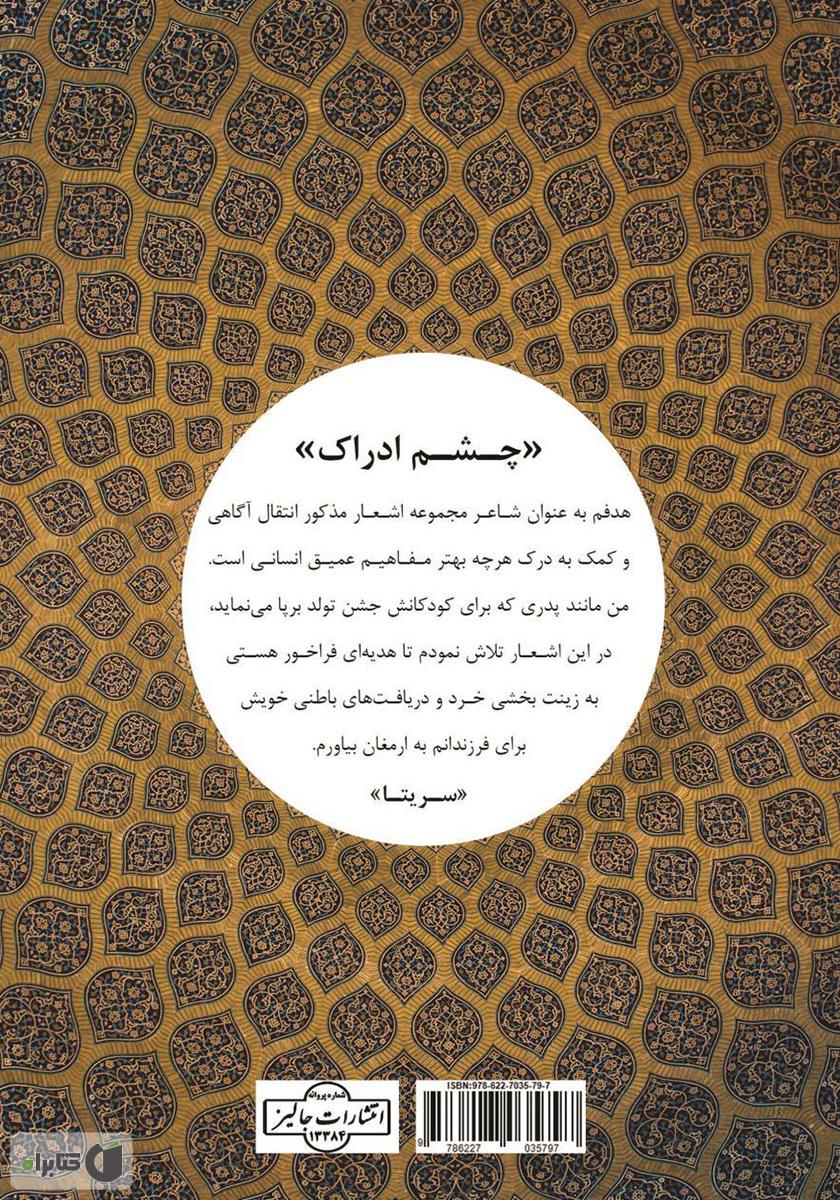 «چشم ادراک»
هدفم به عنوان شاعر مجموعه اشعار مذکور انتقال آگاهی
و کمک به درک هرچه بهتر مفاهیم عمیق انسانی است.
من مانند پدری که برای کودکانش جشن تولد برپا می‌نماید،
در این اشعار تلاش نمودم تا هدیه‌ای فراخور هستی
به زینت بخشی خرد و دریافت‌های باطنی خویش
برای فرزندانم به ارمغان بیاورم.
«سریتا»
شماره پروانه
انتشارات جالیز
۱۳۳۸۴
ISBN:978-622-7035-79-7
9 786227 035797
کتابراه